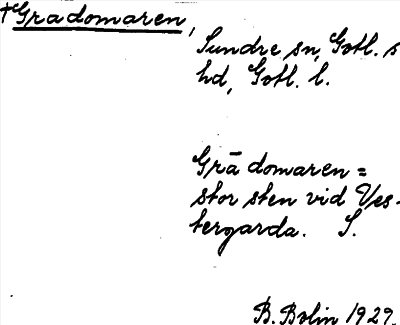 †Gradomaren,
Sundre sn, Gotl. s
hd, Gotl. l.
Grā domaren =
stor sten vid Ves-
tergarda. S.
B. Bolin 1929.